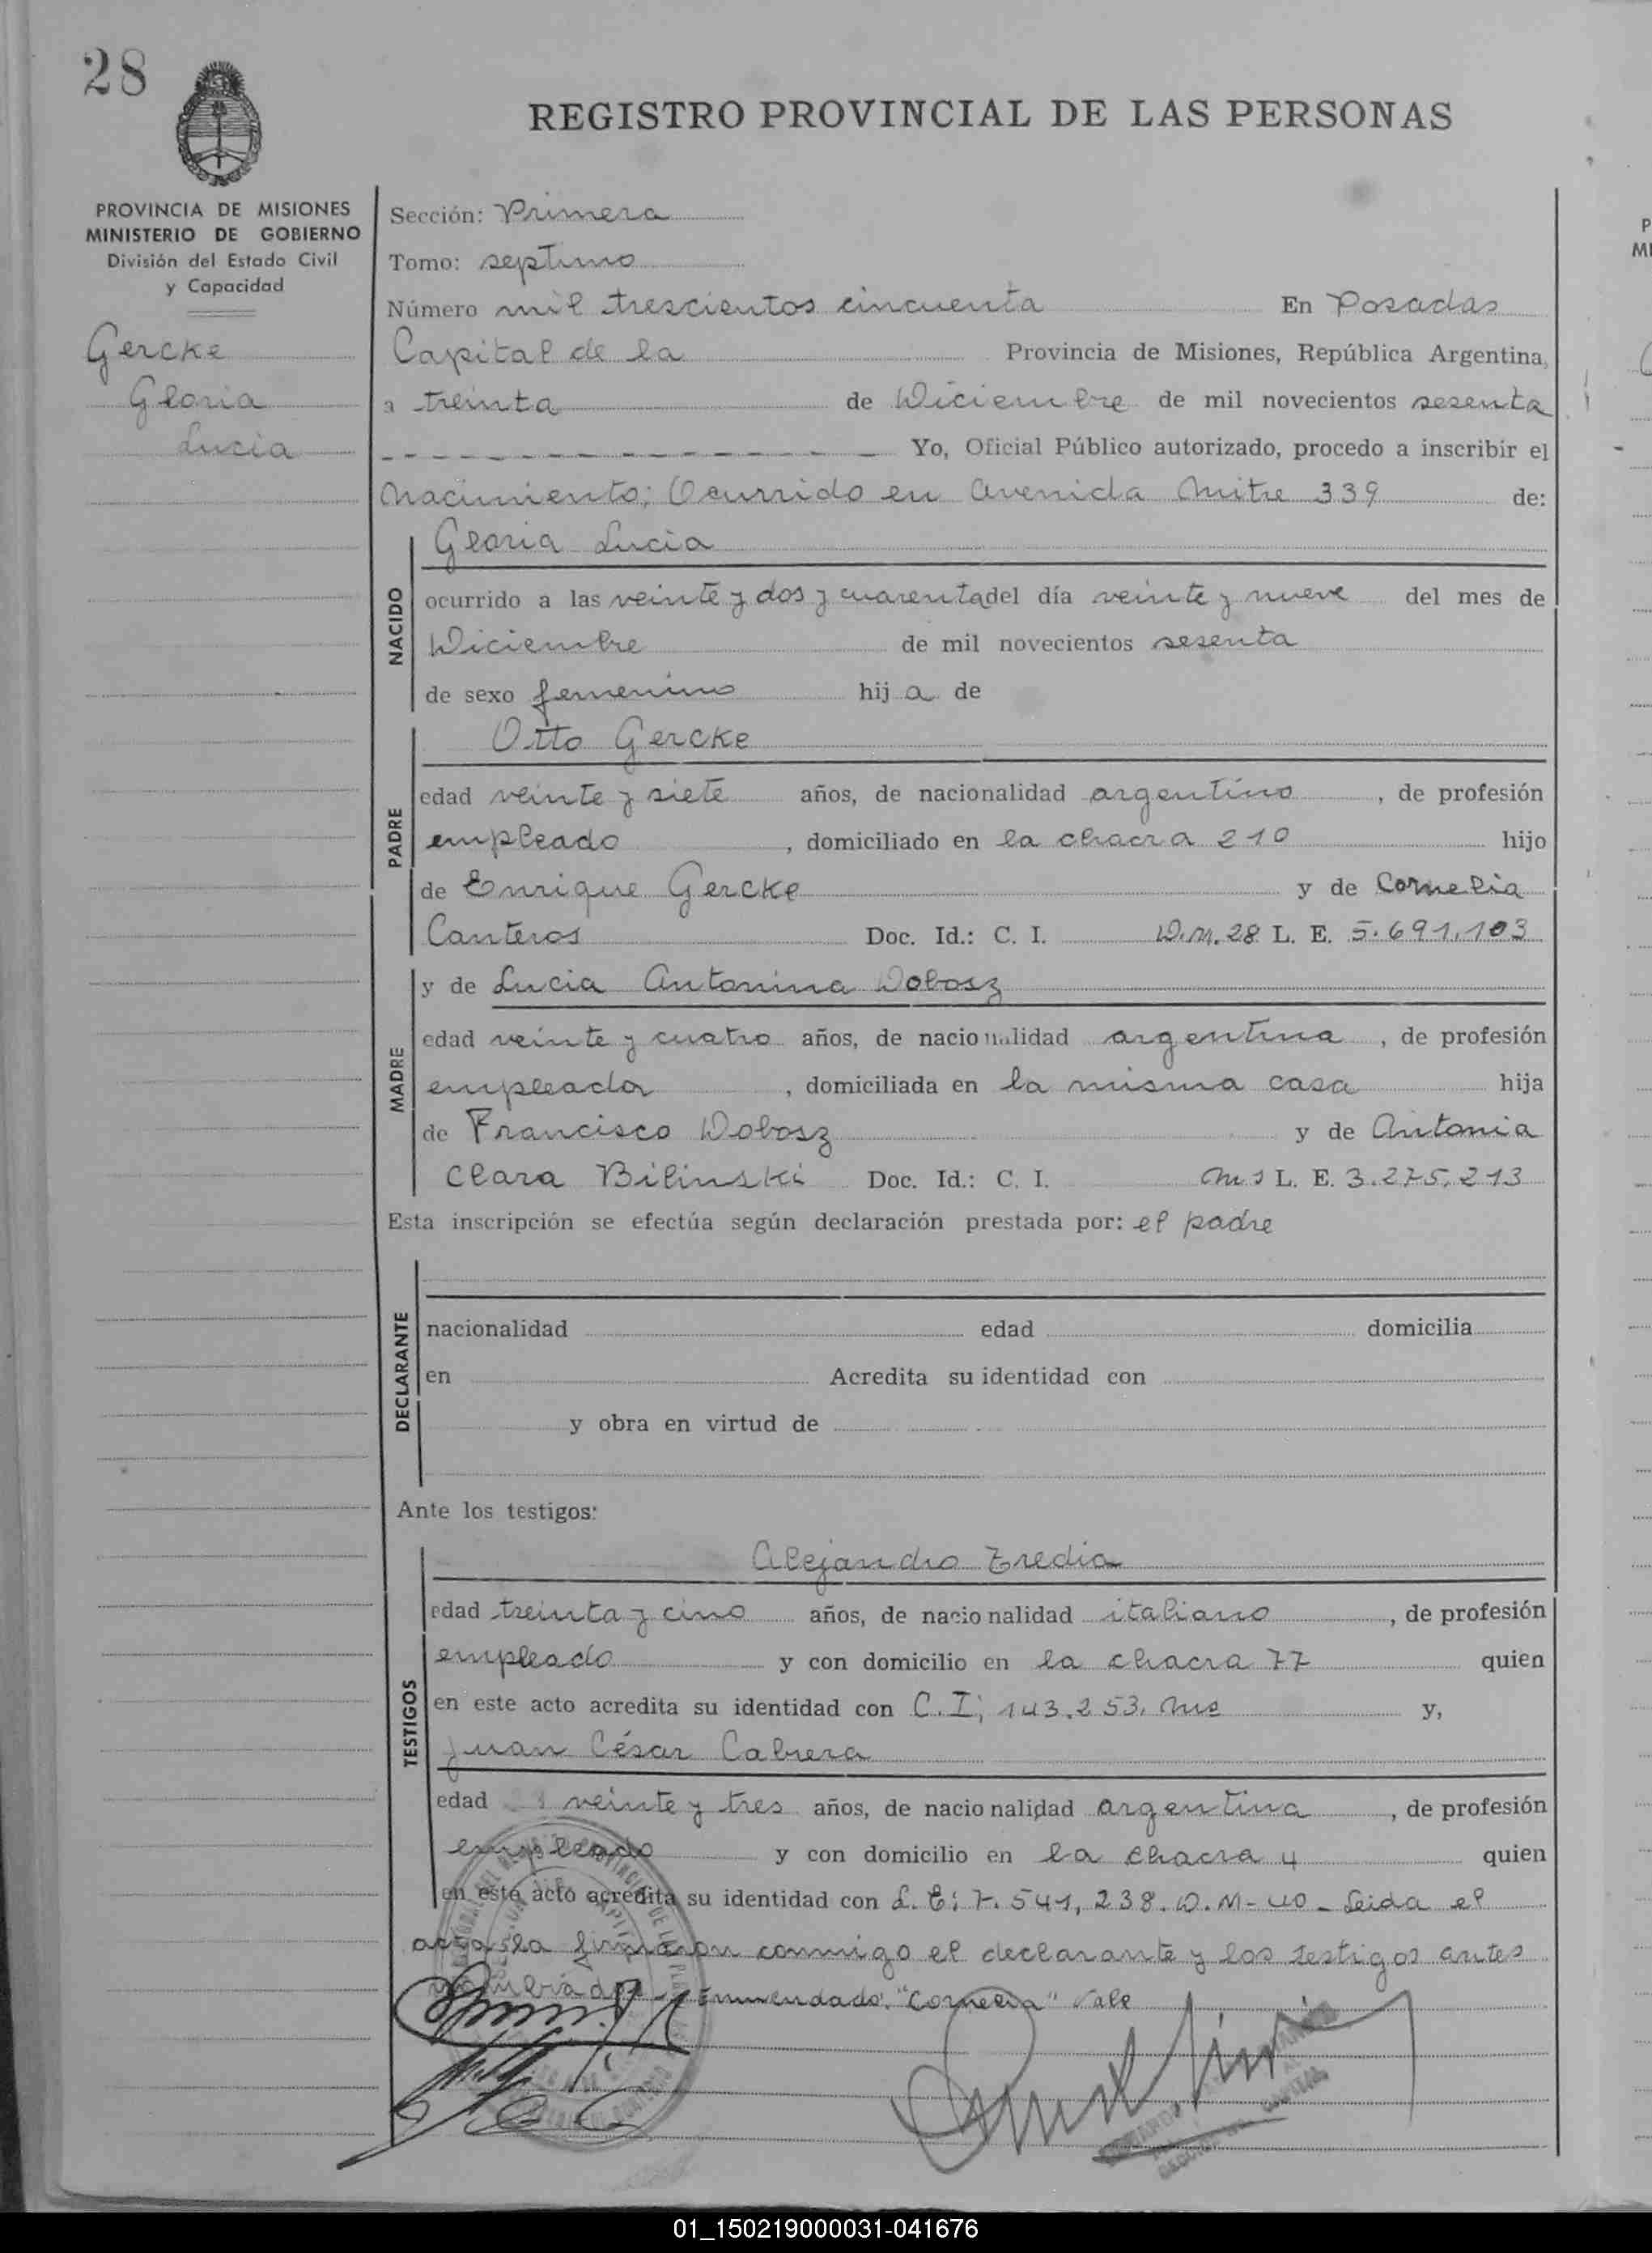 28
REGISTRO PROVINCIAL DE LAS PERSONAS
PROVINCIA DE MISIONES
MINISTERIO DE GOBIERNO
División del Estado Civil
y Capacidad
Gercke
Gloria
Lucia
Sección: Primera
Tomo: septimo
Número mil trescientos cincuenta En Posadas
Capital de la Provincia de Misiones, República Argentina,
a treinta de Diciembre de mil novecientos sesenta
Yo, Oficial Público autorizado, procedo a inscribir el
Nacimiento; Ocurrido en Avenida Mitre 339 de:
NACIDO
Gloria Lucia
ocurrido a las veinte y dos y cuarenta del día veinte y nueve del mes de
Diciembre de mil novecientos sesenta
de sexo femenino hija de
PADRE
Otto Gercke
edad veinte y siete años, de nacionalidad argentino, de profesión
empleado, domiciliado en la chacra 210 hijo
de Enrique Gercke y de Cornelia
Canteros Doc. Id.: C. I. D.M. 28 L. E. 5.691.103
MADRE
y de Lucia Antonina Dobosz
edad veinte y cuatro años, de nacionalidad argentina, de profesión
empleada, domiciliada en la misma casa hija
de Francisco Dobosz y de Antonia
Clara Bilinski Doc. Id.: C. I. L. E. 3.275.213
Esta inscripción se efectúa según declaración prestada por: el padre
DECLARANTE
nacionalidad edad domicilia
en Acredita su identidad con
y obra en virtud de
Ante los testigos:
TESTIGOS
Alejandro Zredia
edad treinta y cinco años, de nacionalidad italiano, de profesión
empleado y con domicilio en la chacra 77 quien
en este acto acredita su identidad con C.I; 143.253. Mns y,
Juan César Cabrera
edad veinte y tres años, de nacionalidad argentina, de profesión
empleado y con domicilio en la chacra 4 quien
en este acto acredita su identidad con L.E: 7.541,238. D.M-40 - Leida el
acta la firmaron conmigo el declarante y los testigos antes
nombrados - Enmendado: "Cornelia" Vale
01_150219000031-041676